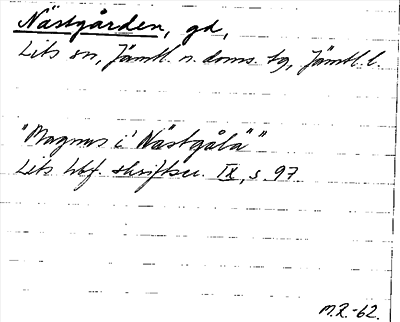 Nästgården, gd,
Lits sn, Jämtl. n. doms. tg, Jämtl. l.
"Magnus i Nästgålä"
Lits hbf. skriftser. IX, s 97
M.R.-62.